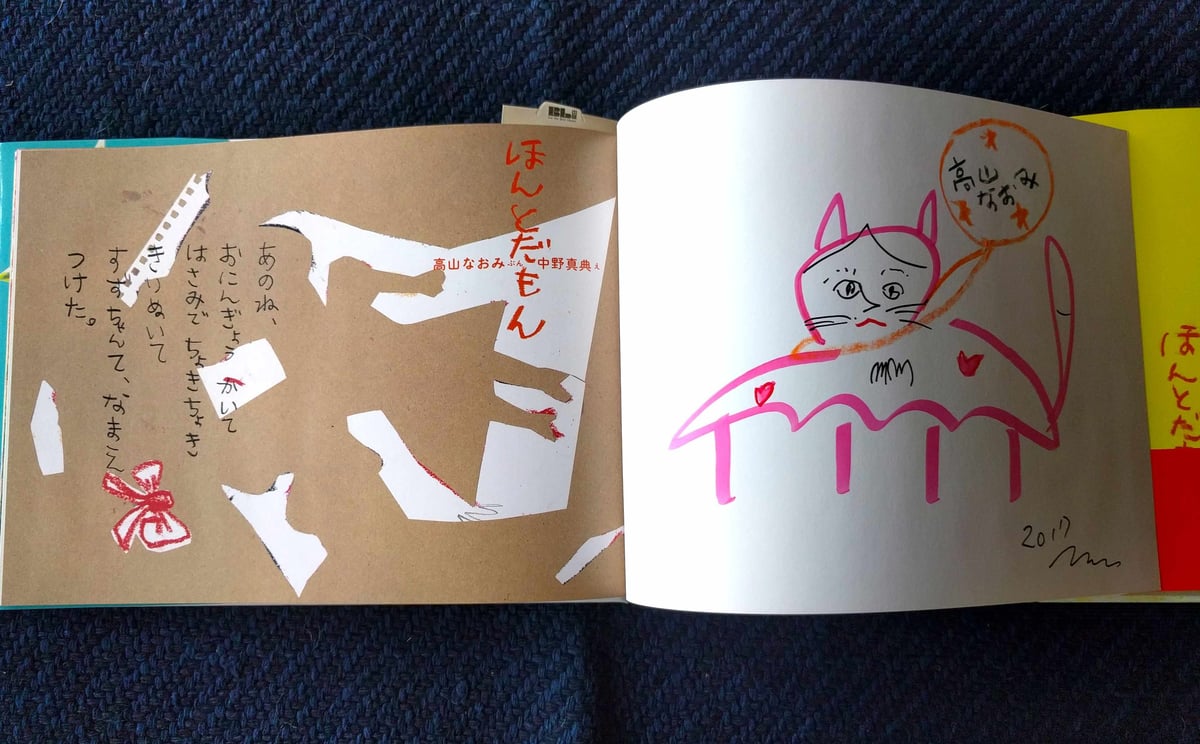 ほんとだもん
高山なおみ ぶん 中野真典 え
あのね、
おにんぎょう かいて
はさみで ちょきちょき
きりぬいて
すずちゃんて、なまえ
つけた。
高山
なおみ
2017
ほんとだ